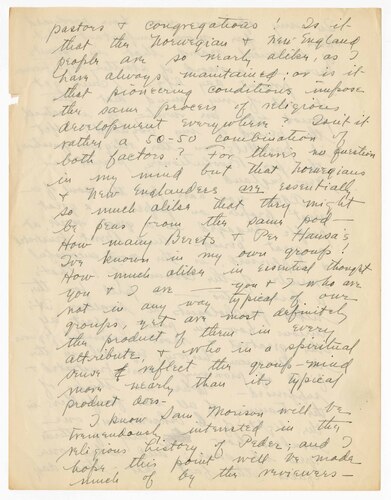 pastors & congregations! Is it
that the Norwegian & New England
people are so nearly alike, as I
have always maintained; or is it
that pioneering conditions impose
the same process of religious
development everywhere? Isn't it
rather a 50-50 combination of
both factors. For there's no question
in my mind but that Norwegians
& New Englanders are essentially
so much alike that they might
be peas from the same pod —
How many Berets & Per Hansa's
I've known in my own group!
How much alike in essential thought
you & I are — you & I who are
not in any way typical of our
groups, yet are most definitely
the product of them in every
attribute, & who in a spiritual
sense reflect the group-mind
more nearly than its typical
product does.
I know Sam Morison will be
tremendously interested in the
religious history of Peder; and I
hope this point will be made
much of by the reviewers —